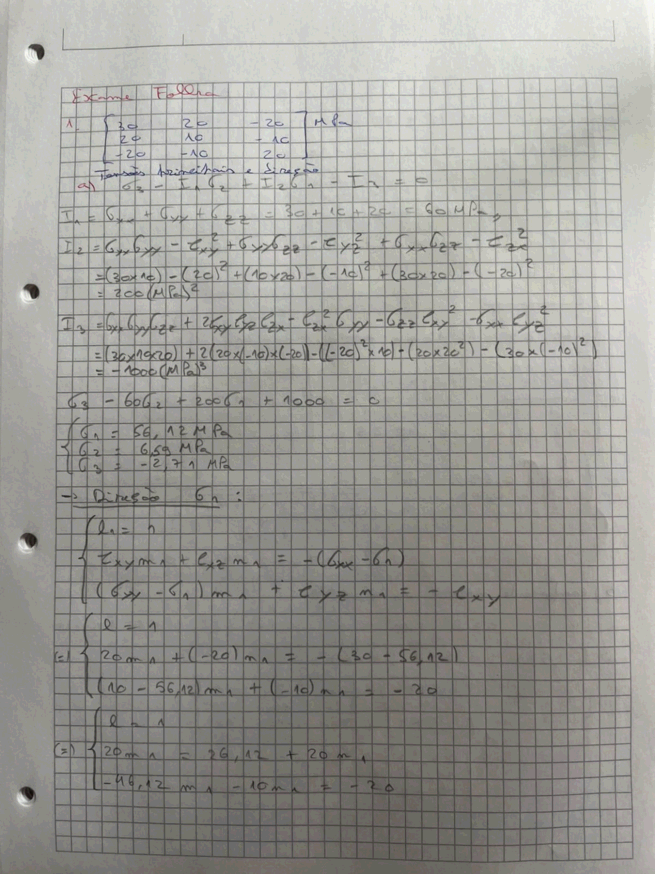 Exame Folha
1. [30 20 -20] MPa
20 10 -10
-20 -10 20
Tensões principais e direção
a) σ3 - I1 σ2 + I2 σ1 - I3 = 0
I1 = σxx + σyy + σzz = 30 + 10 + 20 = 60 MPa
I2 = σxx σyy - τxy² + σyy σzz - τyz² + σxx σzz - τzx²
= (30×10) - (20)² + (10×20) - (-10)² + (30×20) - (-20)²
= 200 (MPa)²
I3 = σxx σyy σzz + 2τxy τyz τzx - τzx² σyy - σzz τxy² - σxx τyz²
= (30×10×20) + 2(20×(-10)×(-20)) - ((-20)²×10) - (20×20²) - (30×(-10)²)
= -1000 (MPa)³
σ3 - 60σ2 + 200σ1 + 1000 = 0
{ σ1 = 56,12 MPa
σ2 = 6,59 MPa
σ3 = -2,71 MPa
→ Direção σ1 :
{ l1 = 1
τxy m1 + τxz n1 = -(σxx - σ1)
(σyy - σ1) m1 + τyz n1 = - τxy
(=) { l = 1
20 m1 + (-20) n1 = - (30 - 56,12)
(10 - 56,12) m1 + (-10) n1 = - 20
(=) { l = 1
20 m1 = 26,12 + 20 n1
-46,12 m1 - 10 n1 = - 20